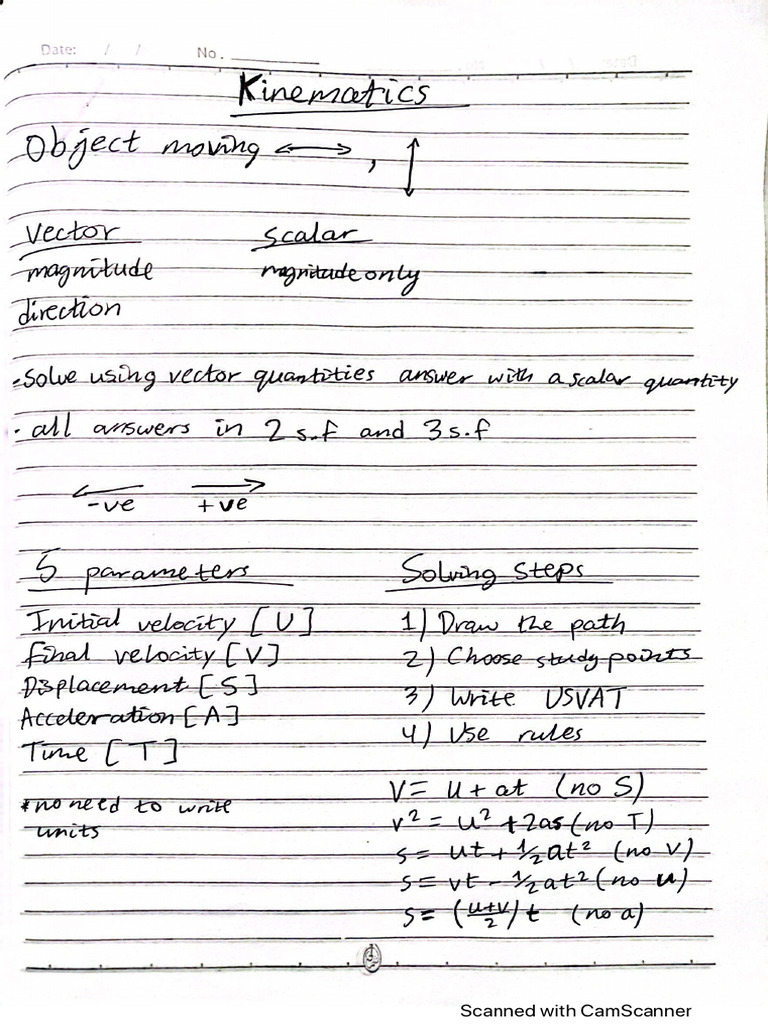 Date: / / No.
Kinematics
Object moving ⟷ , ↕
Vector scalar
magnitude magnitude only
direction
·Solve using vector quantities answer with a scalar quantity
· all answers in 2 s.f and 3 s.f
← →
-ve +ve
5 parameters Solving Steps
Initial velocity [U] 1) Draw the path
final velocity [V] 2) Choose study points
Displacement [S] 3) Write USVAT
Acceleration [A] 4) Use rules
Time [T]
V= u+at (no S)
*no need to write
units
v² = u² +2as (no T)
s= ut+½at² (no v)
s= vt-½at² (no u)
s= (u+v/2)t (no a)
Scanned with CamScanner